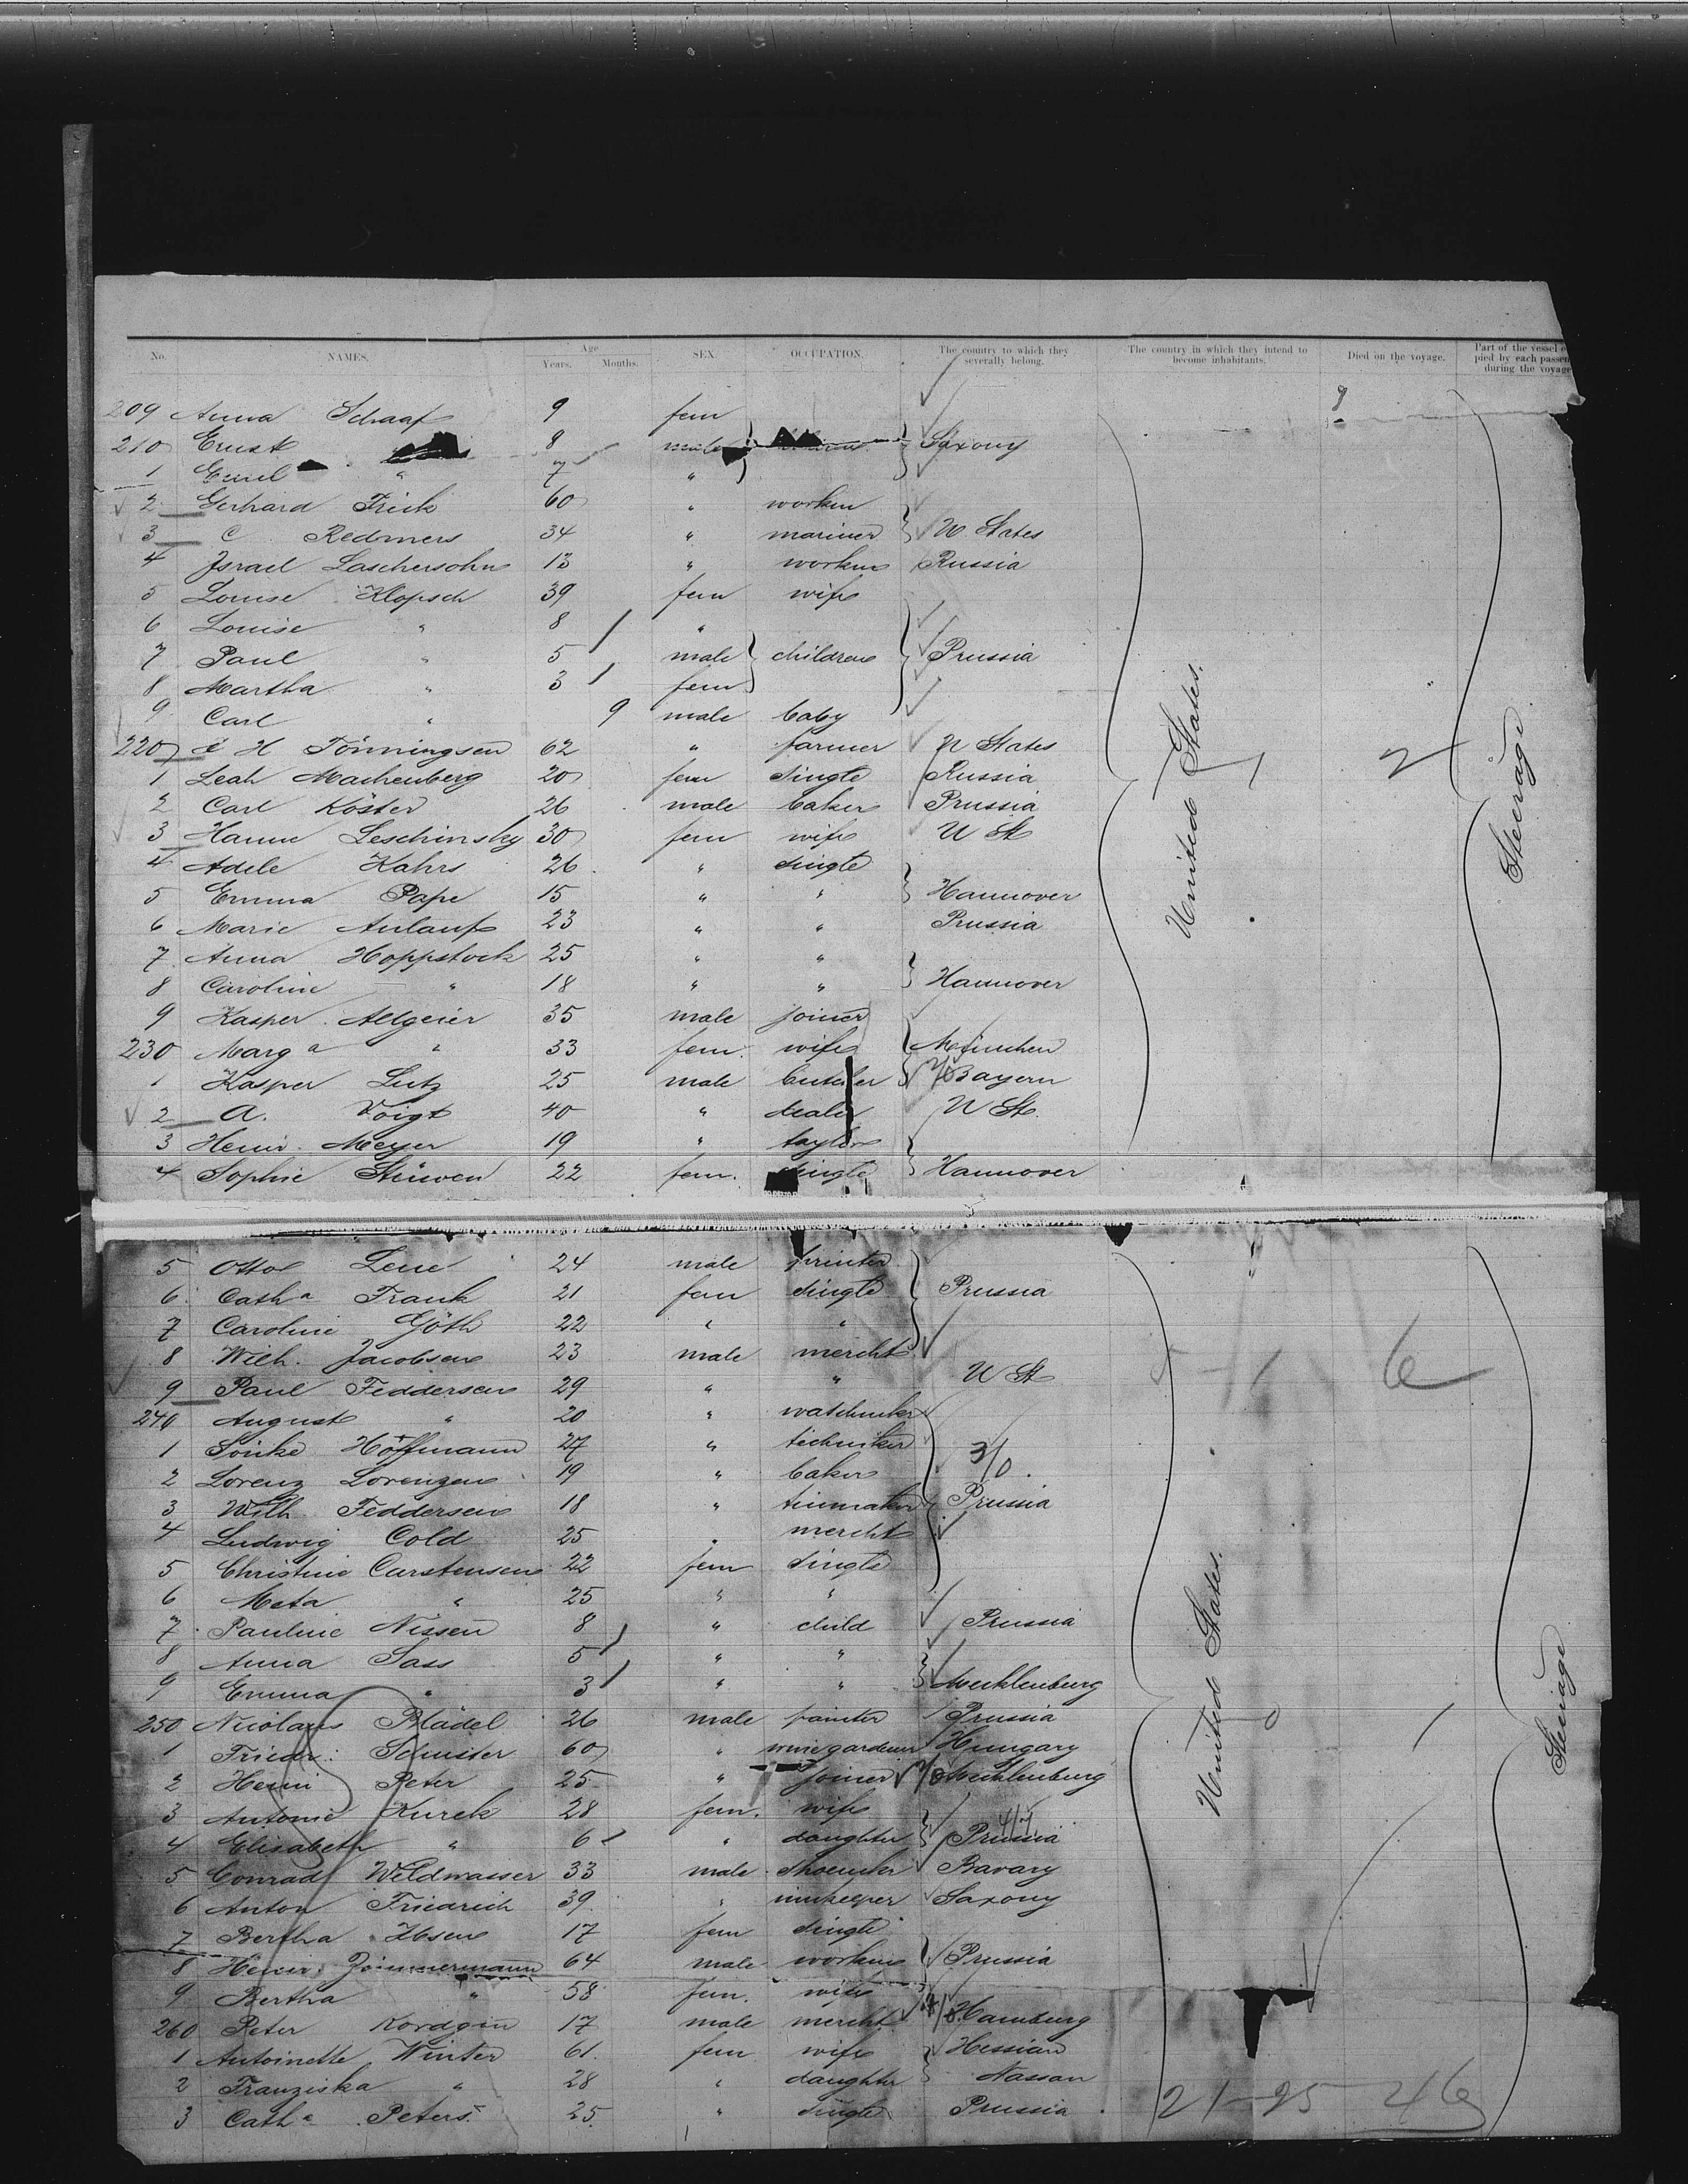 No. NAMES. Age Years. Months. SEX. OCCUPATION. The country to which they severally belong. The country in which they intend to become inhabitants. Died on the voyage. Part of the vessel pied by each passen during the voyage
209 Anna Schaaf 9 fem
210 Ernst 8 male Saxony
1 Emil " 7 "
2 Gerhard Frick 60 " workm
3 C Redmers 34 " mariner U States
4 Israel Laschersohn 13 " workm Russia
5 Louise Klopsch 39 fem wife
6 Louise " 8 "
7 Paul " 5 male children Prussia
8 Martha " 3 fem
9 Carl " 9 male baby
220 H Tönningsen 62 " farmer U States
1 Leah Machenberg 20 fem single Russia
2 Carl Köster 26 male baker Prussia
3 Hanne Leschinsky 30 fem wife U St
4 Adele Kahrs 26 " single
5 Emma Pape 15 " " Hannover
6 Marie Anlauf 23 " " Prussia
7 Anna Hoppstock 25 " "
8 Caroline " 18 " " Hannover
9 Kasper Allgeier 35 male joiner
230 Marg a " 33 fem. wife München
1 Kasper Lutz 25 male butcher Bayern
2 A. Voigt 40 " dealer U St.
3 Heinr. Meyer 19 " taylor
4 Sophie Stüwen 22 fem. single Hannover
United States. 2 Steerage
5 Otto Lene 24 male printer
6 Cath a Frank 21 fem single Prussia
7 Caroline Göth 22 " "
8 Wilh. Jacobsen 23 male mercht
9 Paul Feddersen 29 " " U St
240 August " 20 " watchmker
1 Sönke Hoffmann 27 " techniker 3/0
2 Lorenz Lorenzen 19 " baker
3 Wilh. Feddersen 18 " tinmaker Prussia
4 Ludwig Cold 25 " mercht
5 Christine Carstensen 22 fem single
6 Meta " 25 " "
7 Pauline Nissen 8 " child Prussia
8 Anna Sass 5 " "
9 Emma " 3 " " Mecklenburg
250 Nicolaus Bladel 26 male painter Prussia
1 Friedr: Schuster 60 " winegardener Hungary
2 Henri Peter 25 " joiner Mecklenburg
3 Antonie Kurek 28 fem. wife
4 Elisabeth " 6 " daughter Prussia
5 Conrad Wildwasser 33 male shoemker Bavary
6 Anton Friedrich 39. " innkeeper Saxony
7 Bertha Ibsen 17 fem single
8 Heinr. Zimmermann 64 male workm Prussia
9 Bertha " 58 fem. wife
260 Peter Kordgin 17 male mercht Hamburg
1 Antoinette Winter 61. fem wife Hessian
2 Franziska " 28 " daughter Nassau
3 Cath a Peters 25. " single Prussia
United States. 6 Steerage
21 - 25 46